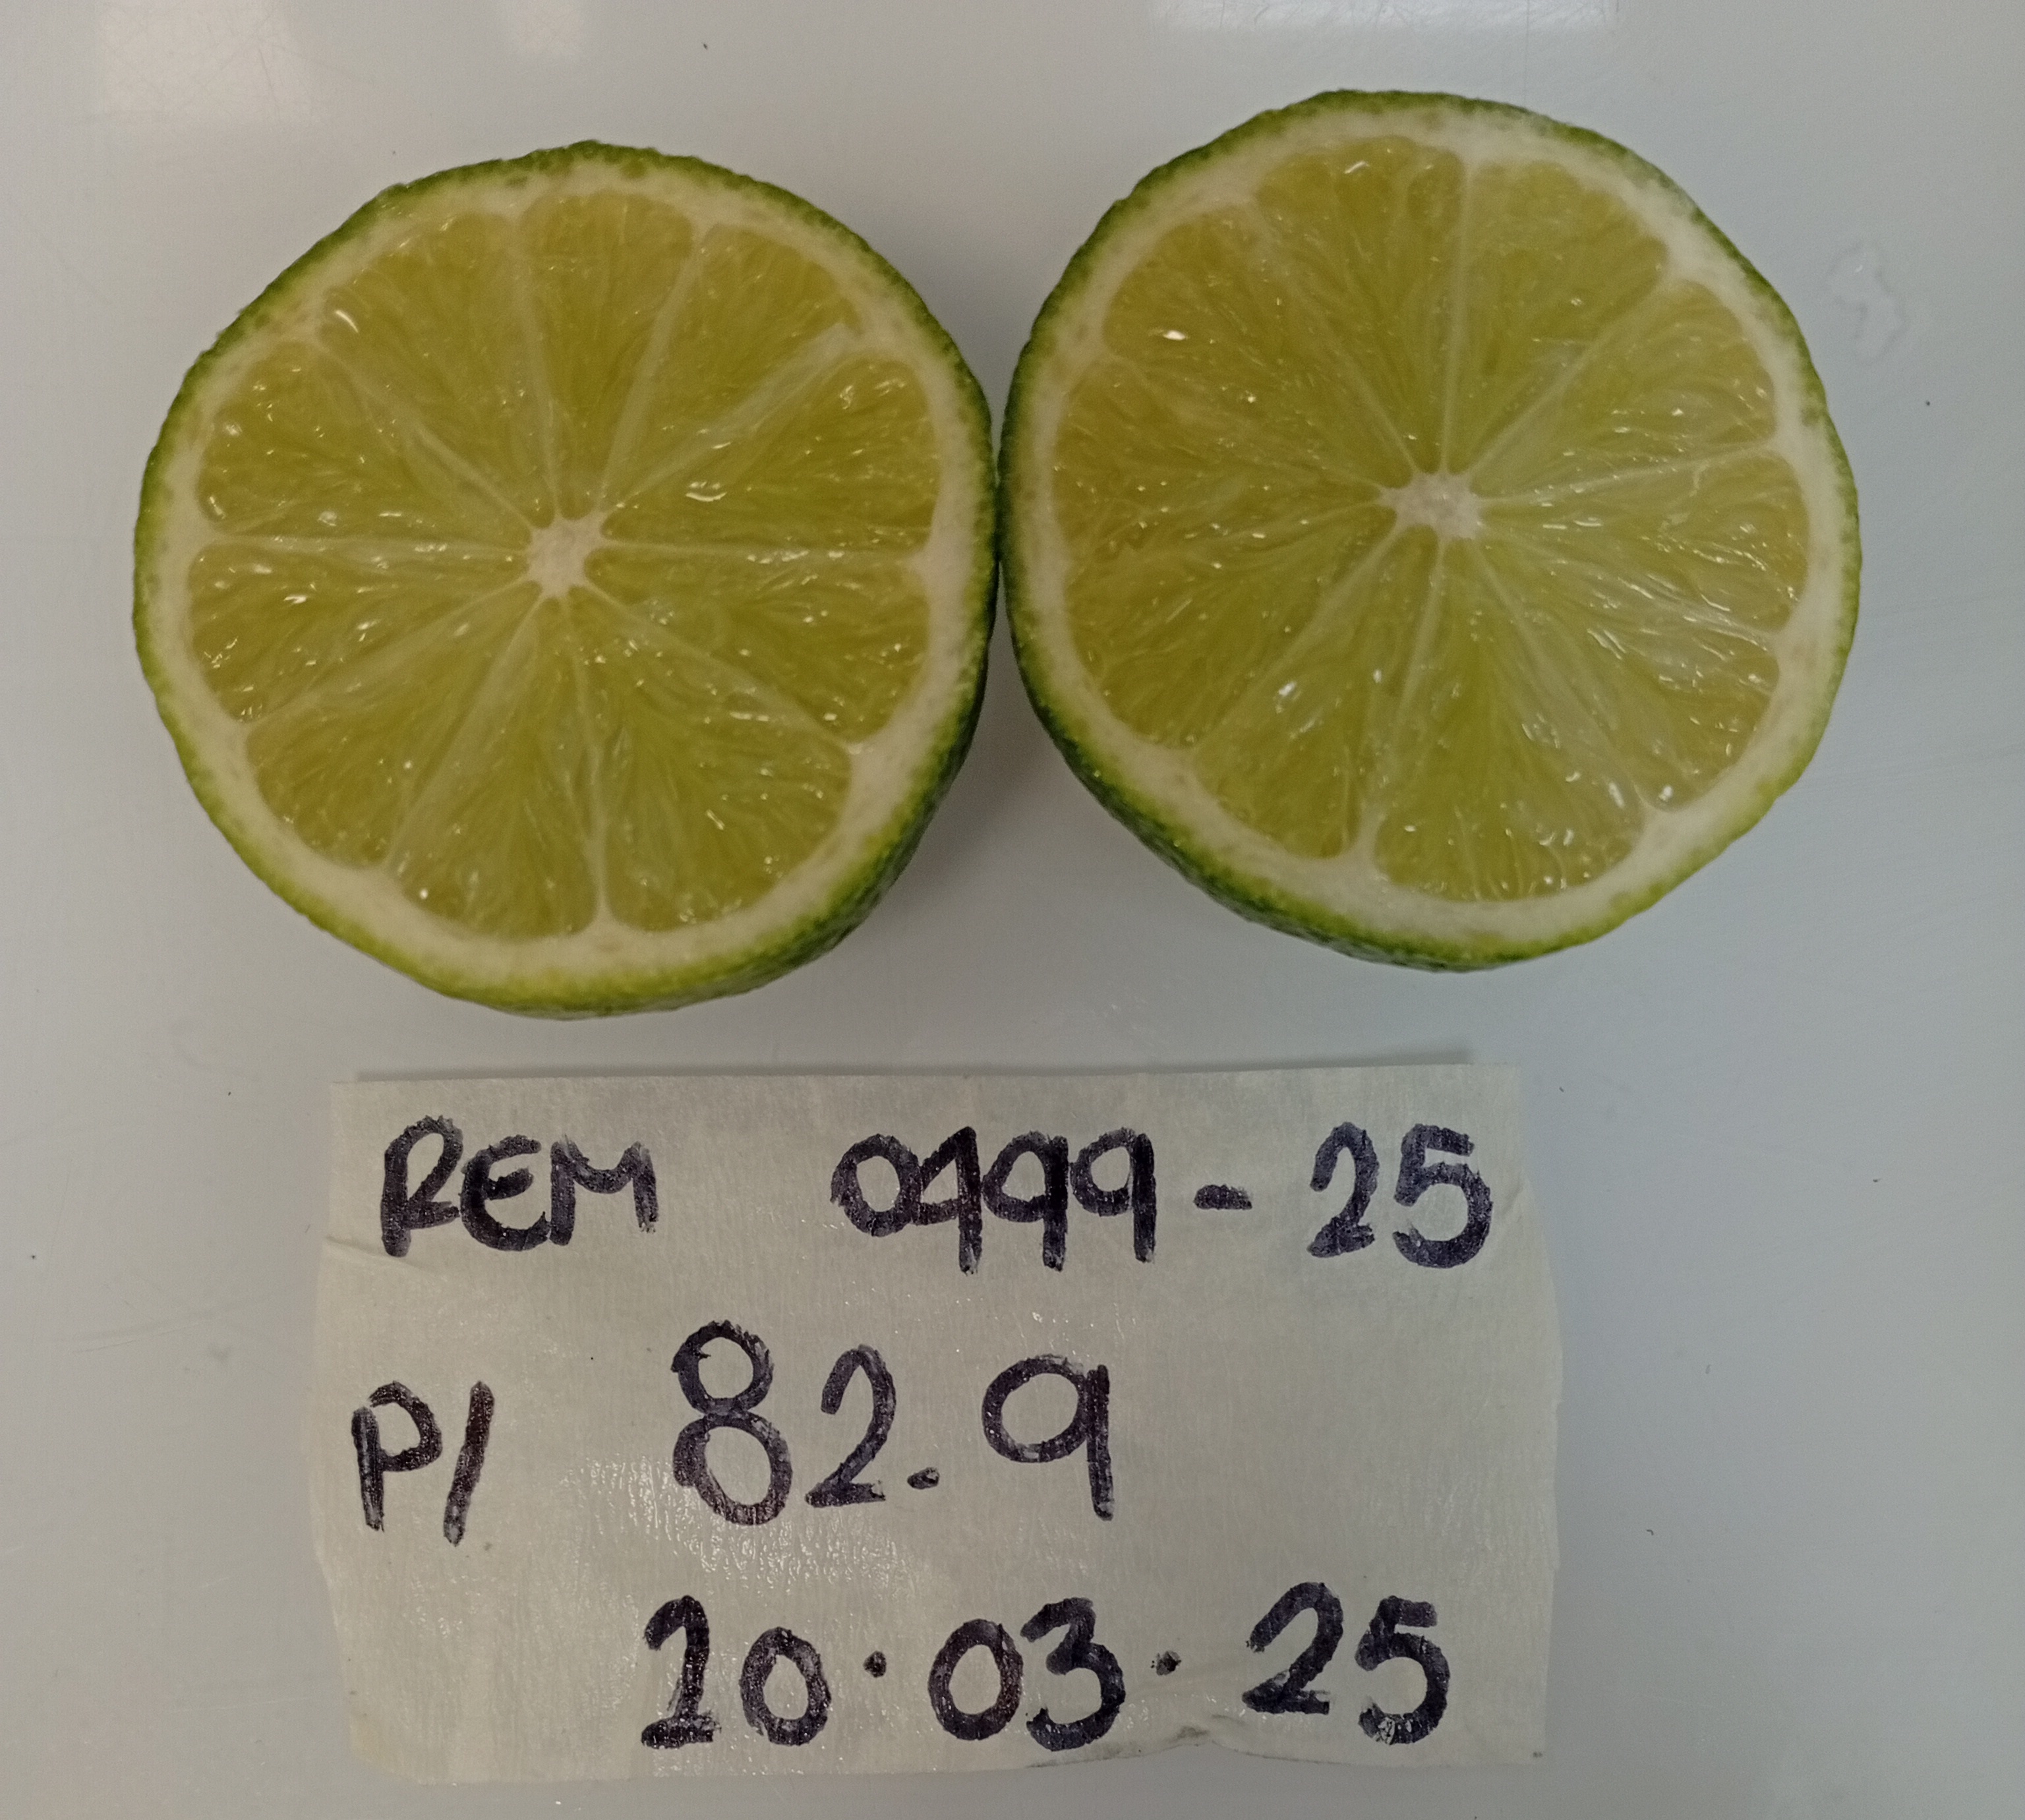 REM 0999-25
P/ 82.9
20.03.25